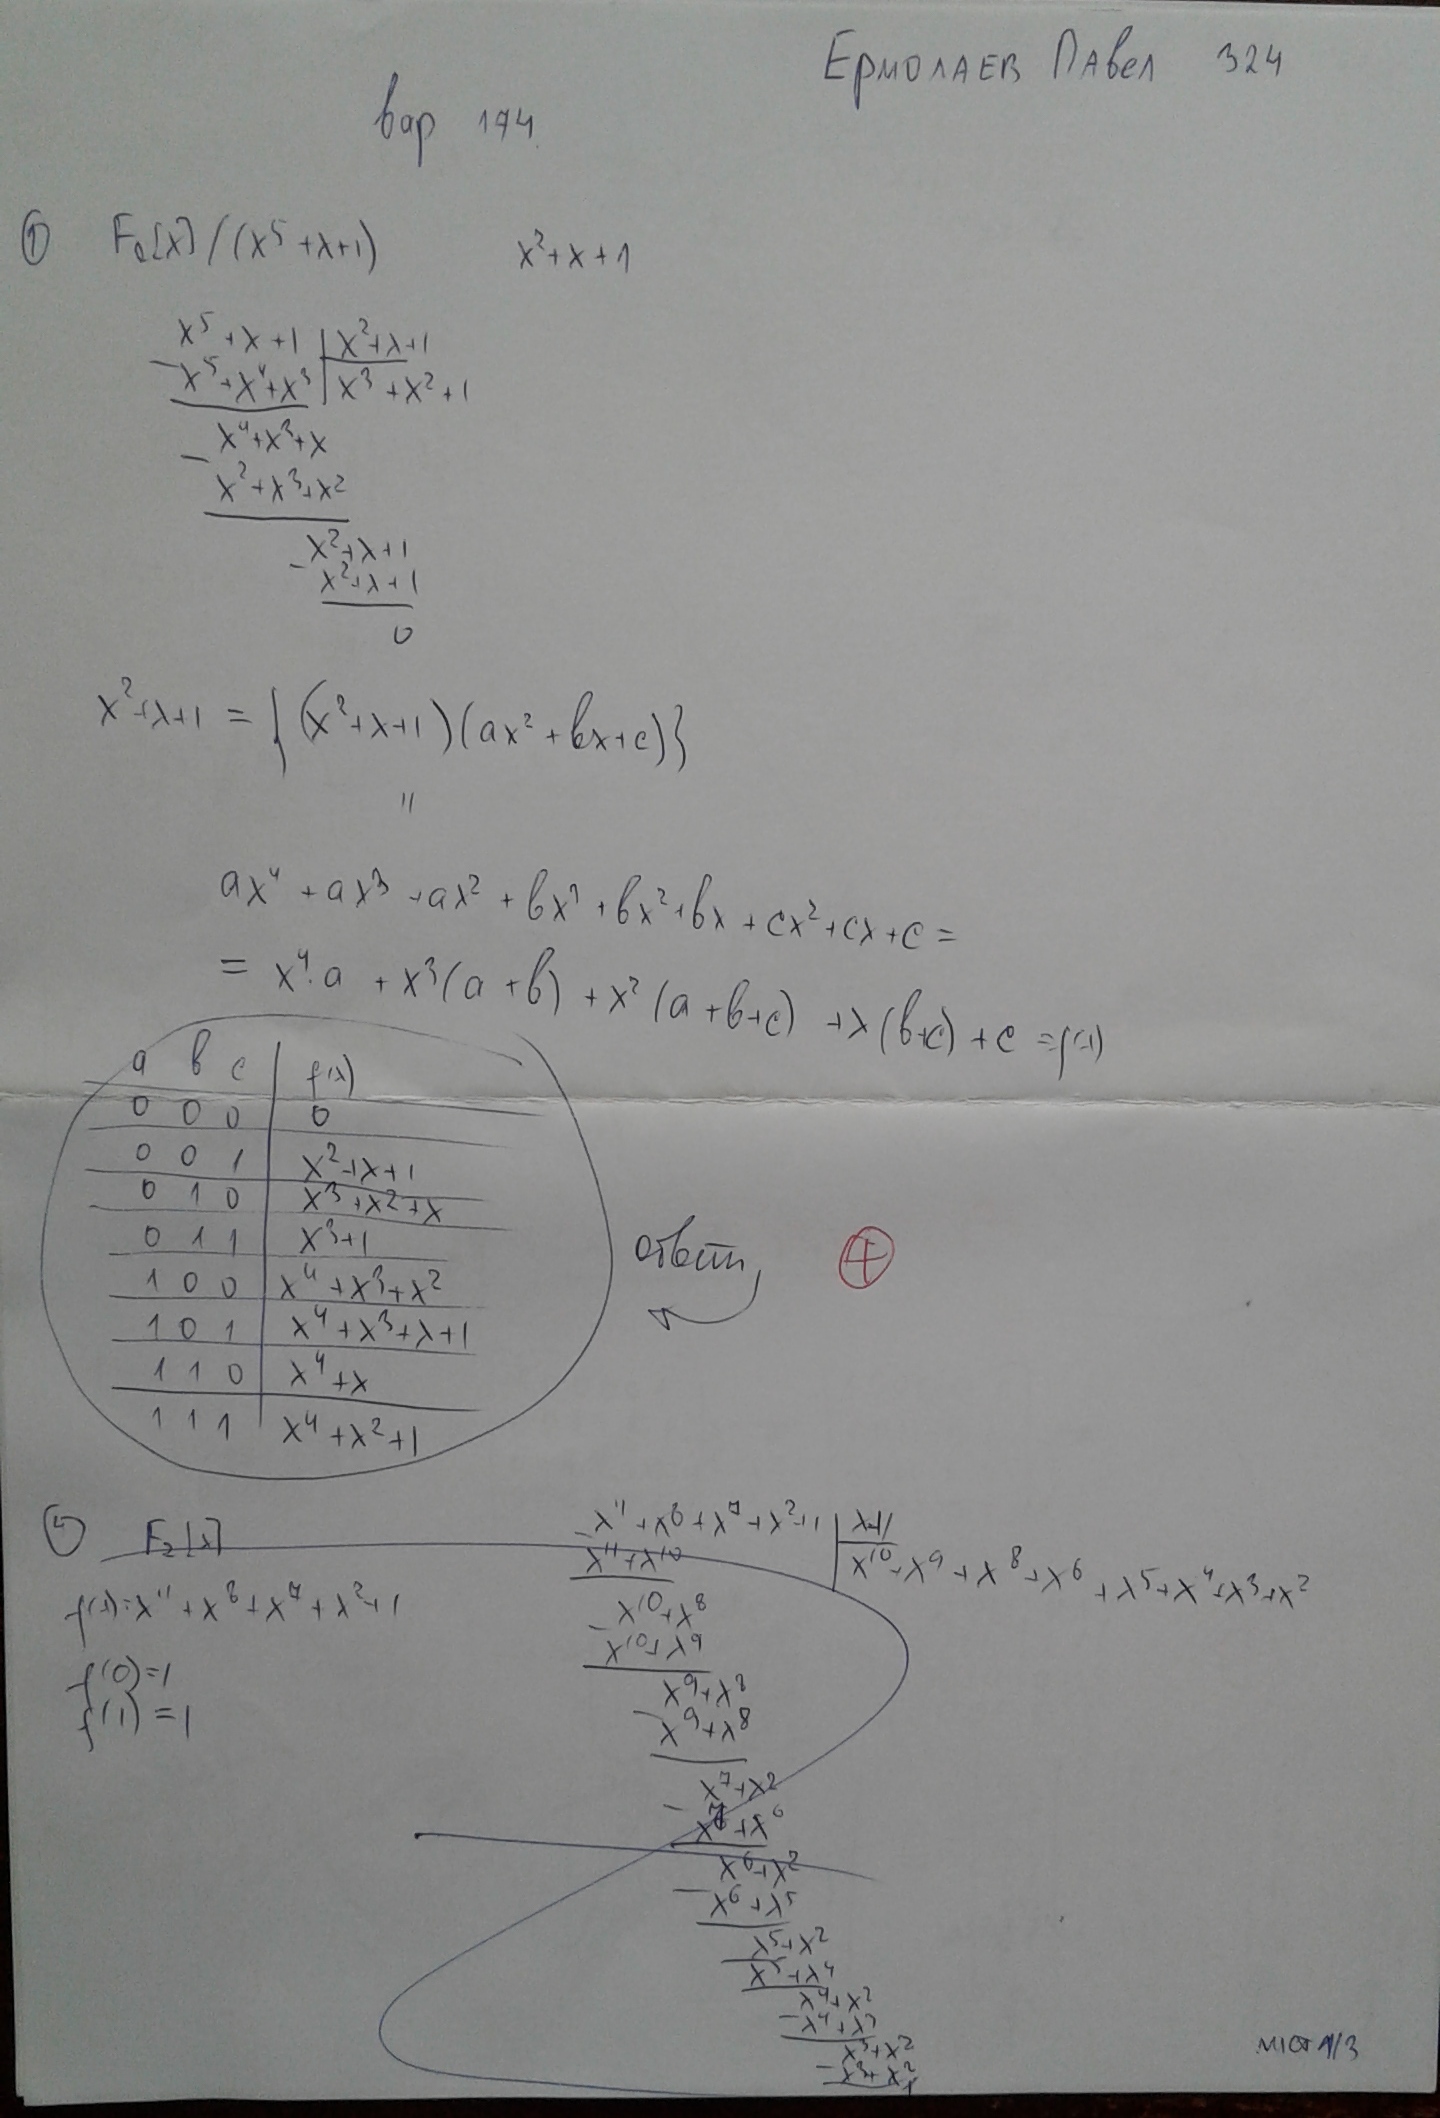 Ермолаев Павел 324
вар 174.
① F₂[x]/(x⁵+x+1) x²+x+1
x⁵+x+1 | x²+x+1
x⁵+x⁴+x³ | x³+x²+1
x⁴+x³+x
x²+x³+x²
x²+x+1
x²+x+1
0
x²+x+1 = {(x²+x+1)(ax²+bx+c)}
"
ax⁴+ax³+ax²+bx³+bx²+bx+cx²+cx+c=
= x⁴·a + x³(a+b) + x²(a+b+c) + x(b+c) + c = f(x)
a b c | f(x)
0 0 0 | 0
0 0 1 | x²+x+1
0 1 0 | x³+x²+x
0 1 1 | x³+1
1 0 0 | x⁴+x³+x²
1 0 1 | x⁴+x³+x+1
1 1 0 | x⁴+x
1 1 1 | x⁴+x²+1
ответ
+
F₂[x]
f(x)=x¹¹+x⁸+x⁷+x²+1
f(0)=1
f(1)=1
x¹¹+x⁸+x⁷+x²+1 | x+1
x¹¹+x¹⁰ | x¹⁰+x⁹+x⁸+x⁶+x⁵+x⁴+x³+x²
x¹⁰+x⁸
x¹⁰+x⁹
x⁹+x⁸
x⁹+x⁸
x⁷+x²
x⁷+x⁶
x⁶+x²
x⁶+x⁵
x⁵+x²
x⁵+x⁴
x⁴+x²
x⁴+x³
x³+x²
x³+x²
1
лист 1/3